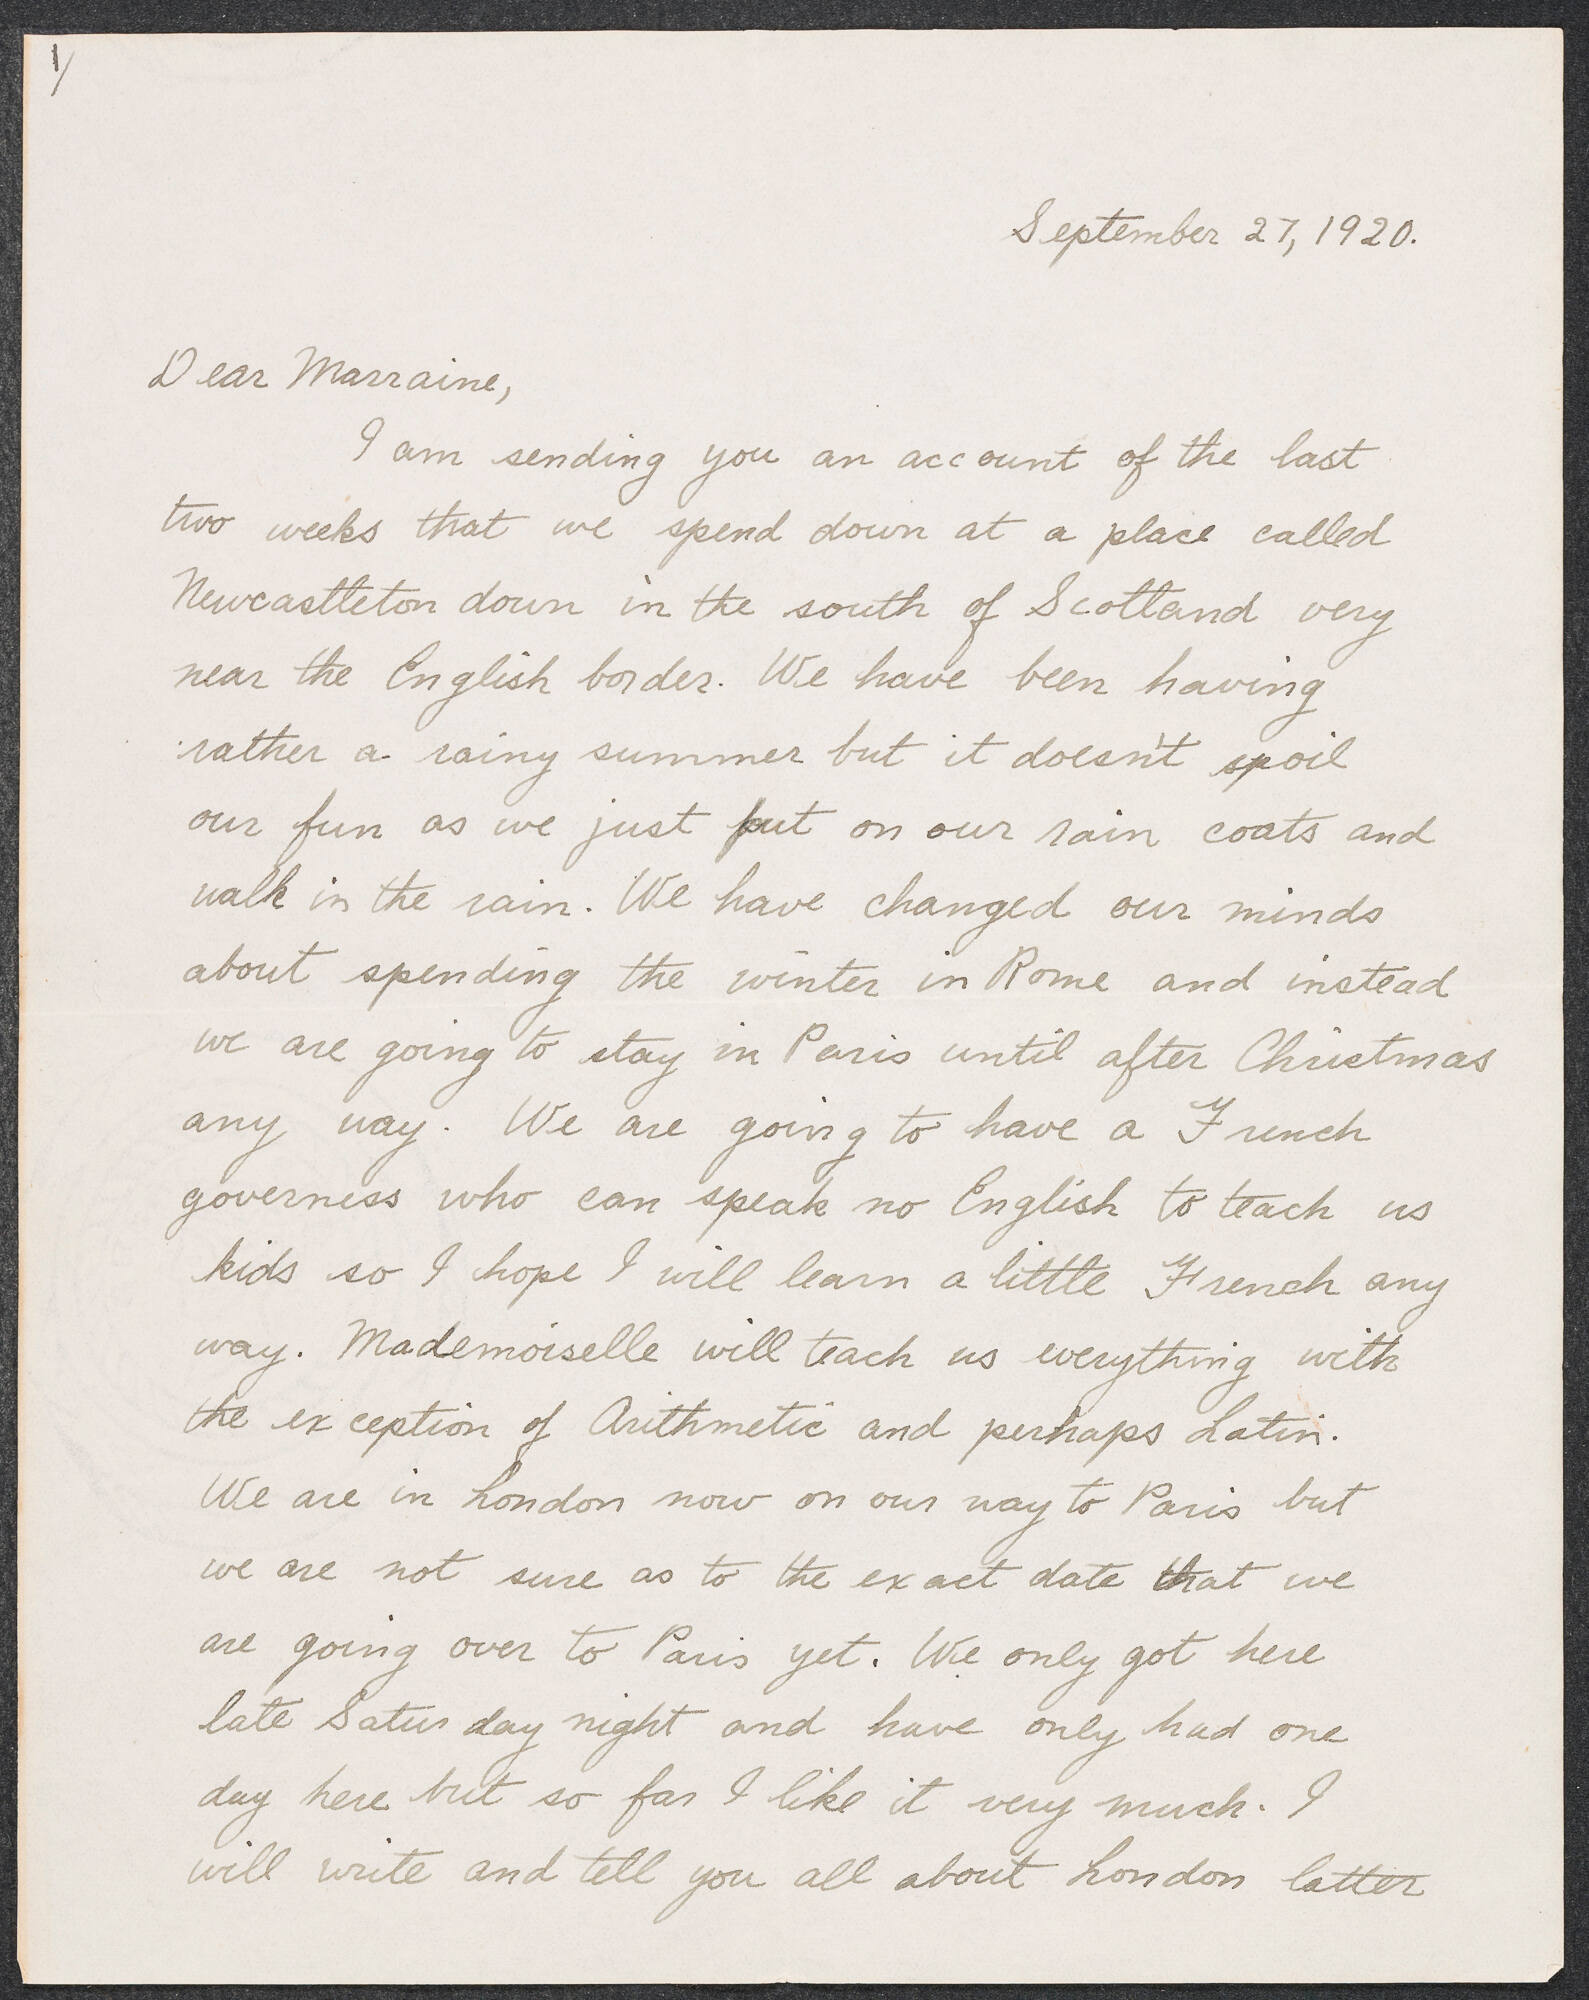 1/
September 27, 1920.
Dear Marraine,
I am sending you an account of the last
two weeks that we spend down at a place called
Newcastleton down in the south of Scotland very
near the English border. We have been having
rather a rainy summer but it doesn't spoil
our fun as we just put on our rain coats and
walk in the rain. We have changed our minds
about spending the winter in Rome and instead
we are going to stay in Paris until after Christmas
any way. We are going to have a French
governess who can speak no English to teach us
kids so I hope I will learn a little French any
way. Mademoiselle will teach us everything with
the exception of Arithmetic and perhaps Latin.
We are in London now on our way to Paris but
we are not sure as to the exact date that we
are going over to Paris yet. We only got here
late Saturday night and have only had one
day here but so far I like it very much. I
will write and tell you all about London latter